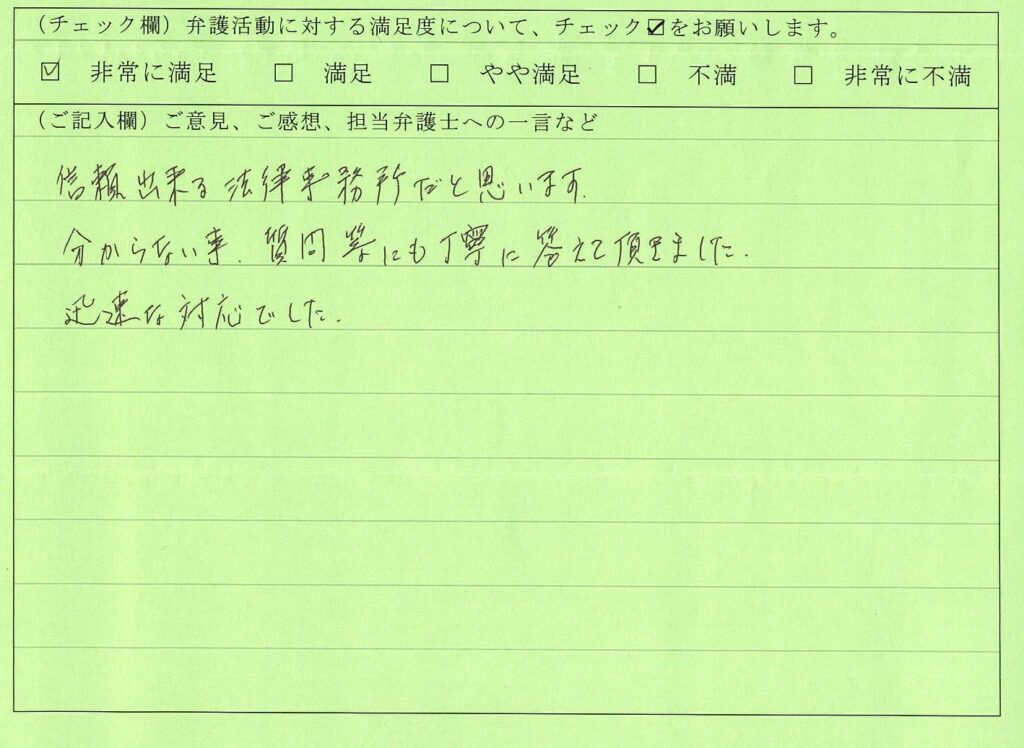 (チェック欄)弁護活動に対する満足度について、チェック☑をお願いします。
☑ 非常に満足 □ 満足 □ やや満足 □ 不満 □ 非常に不満
(ご記入欄)ご意見、ご感想、担当弁護士への一言など
信頼出来る法律事務所だと思います.
分からない事.質問等にも丁寧に答えて頂きました.
迅速な対応でした.